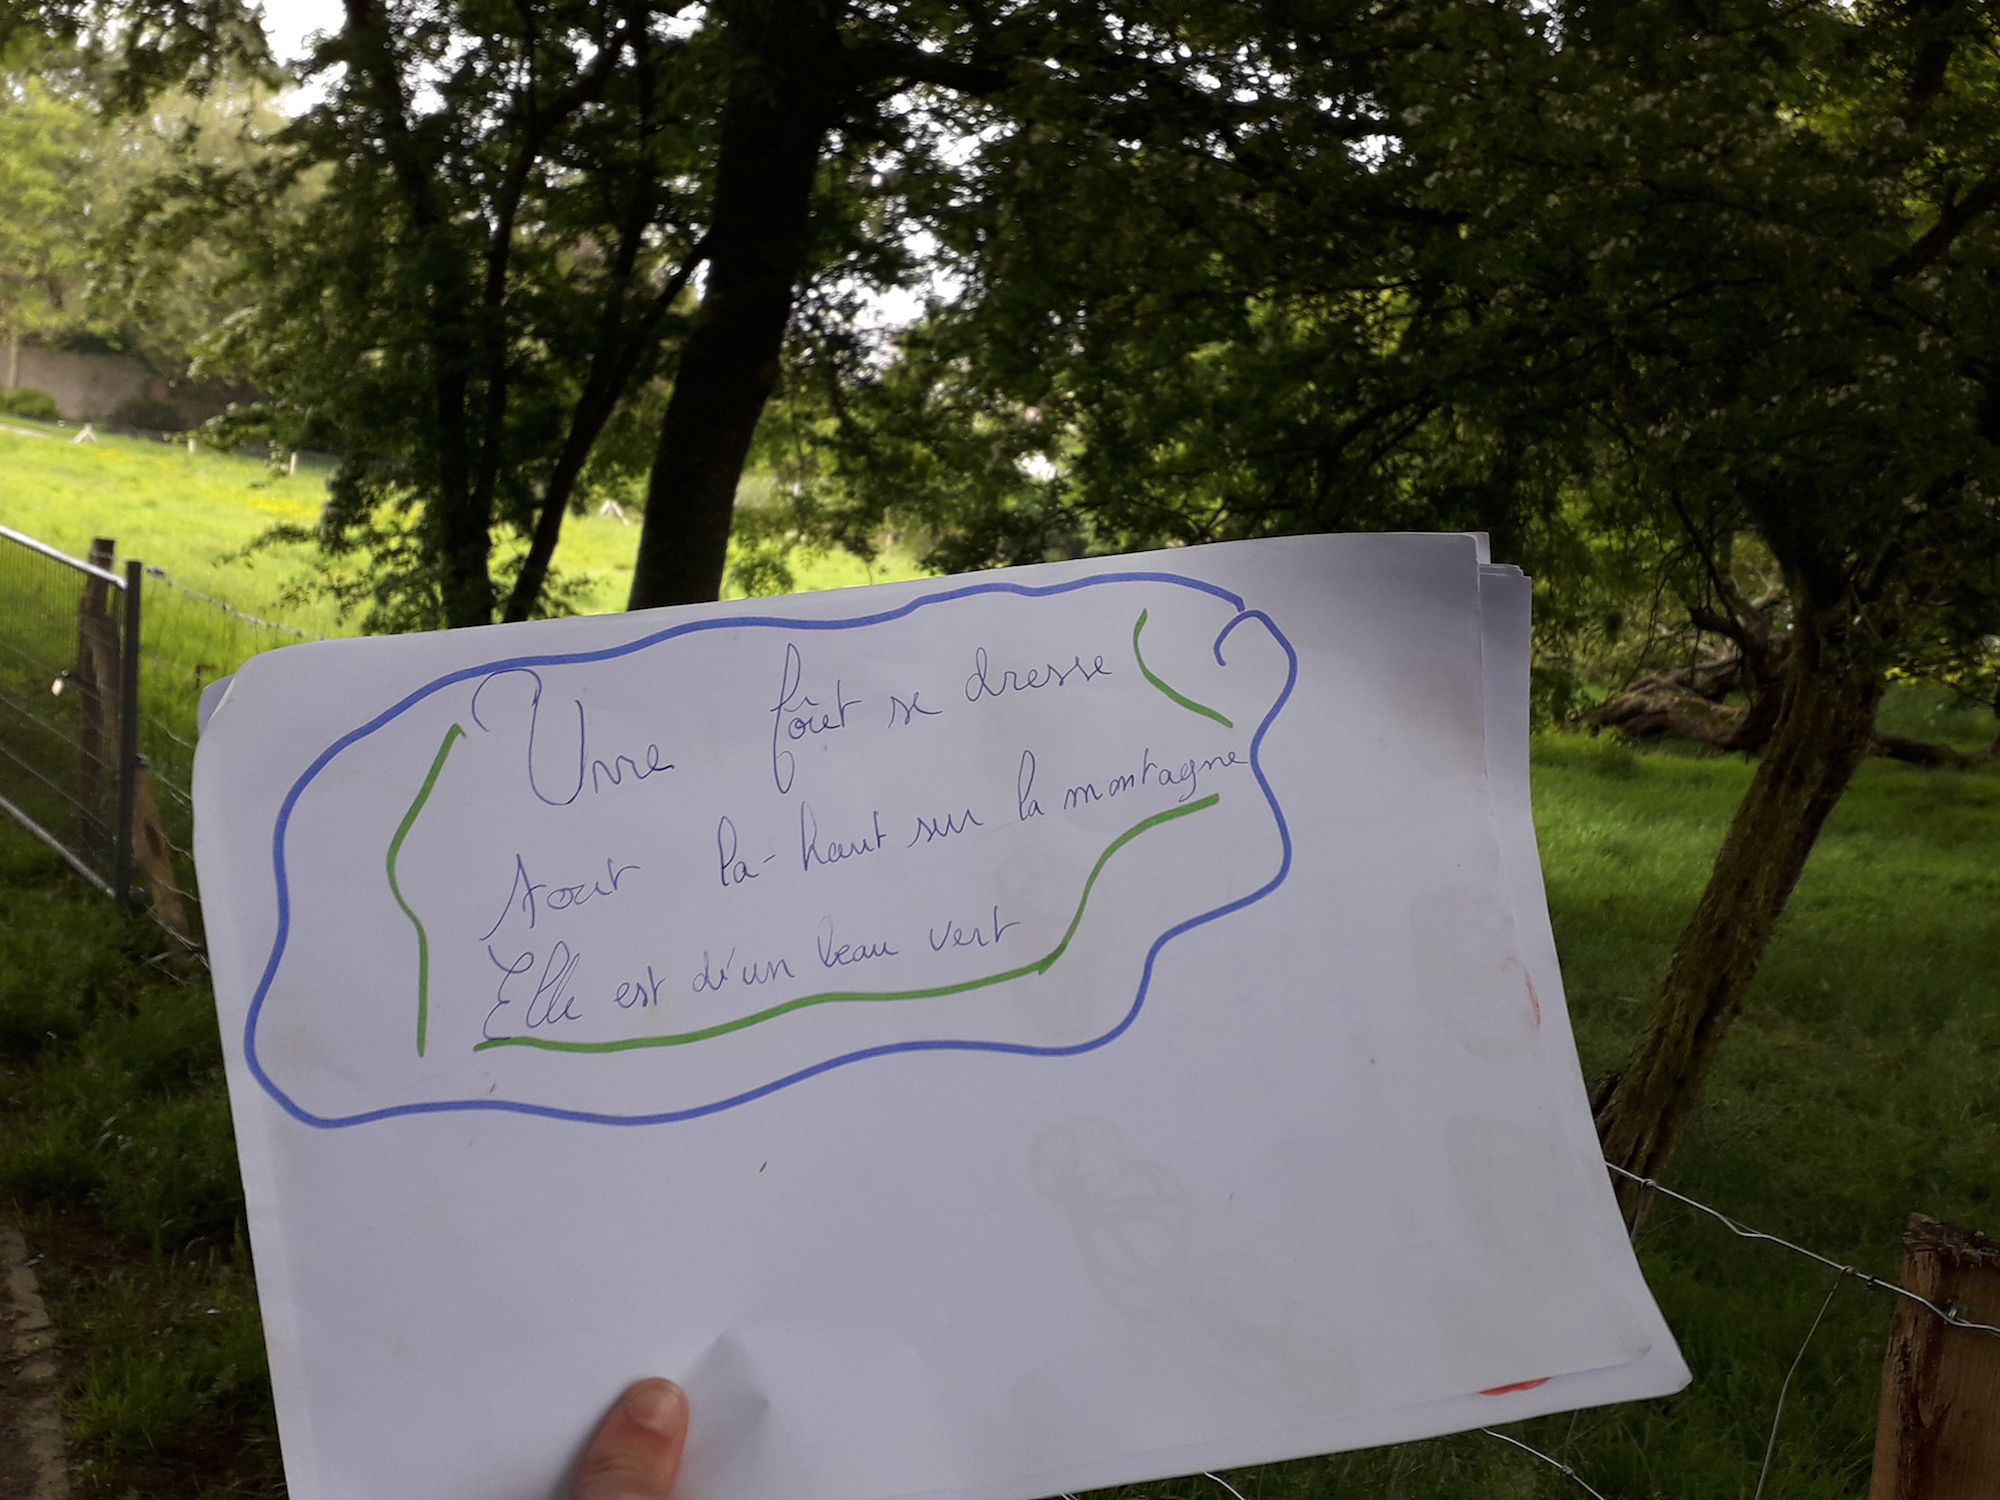 Une fôret se dresse
tout la-haut sur la montagne
Elle est d'un beau vert